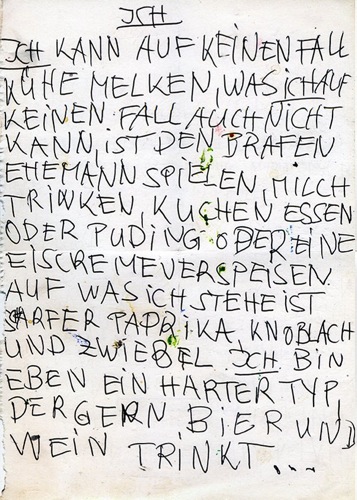 ICH
ICH KANN AUF KEINEN FALL
KÜHE MELKEN, WAS ICH AUF
KEINEN FALL AUCH NICHT
KANN, IST DEN BRAFEN
EHEMANN SPIELEN, MILCH
TRINKEN, KUCHEN ESSEN
ODER PUDING ODER EINE
EISCREME VERSPEISEN.
AUF WAS ICH STEHE IST
SARFER PAPRIKA, KNOBLACH
UND ZWIEBEL. ICH BIN
EBEN EIN HARTER TYP,
DER GERN BIER UND
WEIN TRINKT...